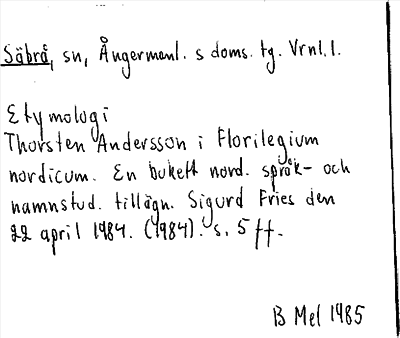 Säbrå, sn, Ångermanl. s doms. tg. Vrnl. l.
Etymologi
Thorsten Andersson i Florilegium
nordicum. En bukett nord. språk- och
namnstud. tillägn. Sigurd Fries den
22 april 1984. (1984). s. 5 ff.
B Mel 1985